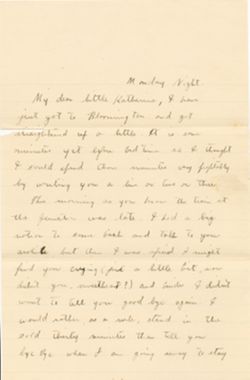 Monday Night.
My dear little Katharine, I have
just got to Bloomington and got
straightened up a little. It is some
minutes yet before bed time so I thought
I could spend them minutes very profitably
by writing you a line or two or three.
This morning as you know the train at
the junction was late. I had a big
notion to come back and talk to you
awhile but then I was afraid I might
find you crying (just a little bit, now
didn't you, sweetheart?) and besides I didn't
want to tell you good bye again. I
would rather, as a rule, stand in the
cold thirty minutes than tell you
bye bye when I am going away to stay